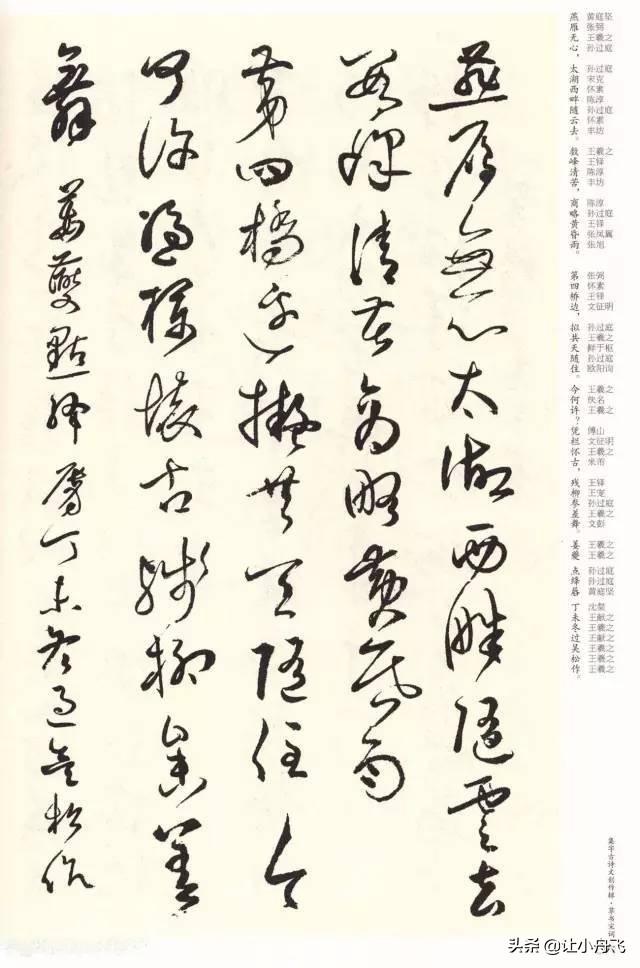 燕雁無心太湖西畔隨雲去
數峰清苦商略黃昏雨
第四橋邊擬共天隨住今
何許憑欄懷古殘柳參差
舞 姜夔點絳唇丁未冬過吴松作
燕雁无心，太湖西畔随云去。数峰清苦，商略黄昏雨。第四桥边，拟共天随住。今何许？凭栏怀古，残柳参差舞。姜夔 点绛唇 丁未冬过吴松作。
黄庭坚
张弼
王羲之
孙过庭
孙过庭
宋克
怀素
陈淳
孙过庭
怀素
丰坊
王羲之
王铎
陈淳
丰坊
陈淳
孙过庭
王铎
张凤翼
张旭
张弼
怀素
王铎
文征明
孙过庭
王羲之
鲜于枢
孙过庭
欧阳询
王羲之
佚名
王羲之
傅山
文征明
王羲之
米芾
王铎
王宠
孙过庭
王羲之
文彭
王羲之
王羲之
孙过庭
孙过庭
黄庭坚
沈粲
王献之
王羲之
王献之
王羲之
王羲之
王羲之
集字古诗文创作辑·草书宋词
头条 @让小舟飞